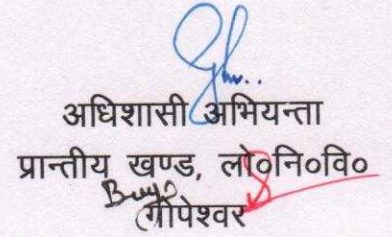 अधिशासी अभियन्ता
प्रान्तीय खण्ड, लो०नि०वि०
गोपेश्वर